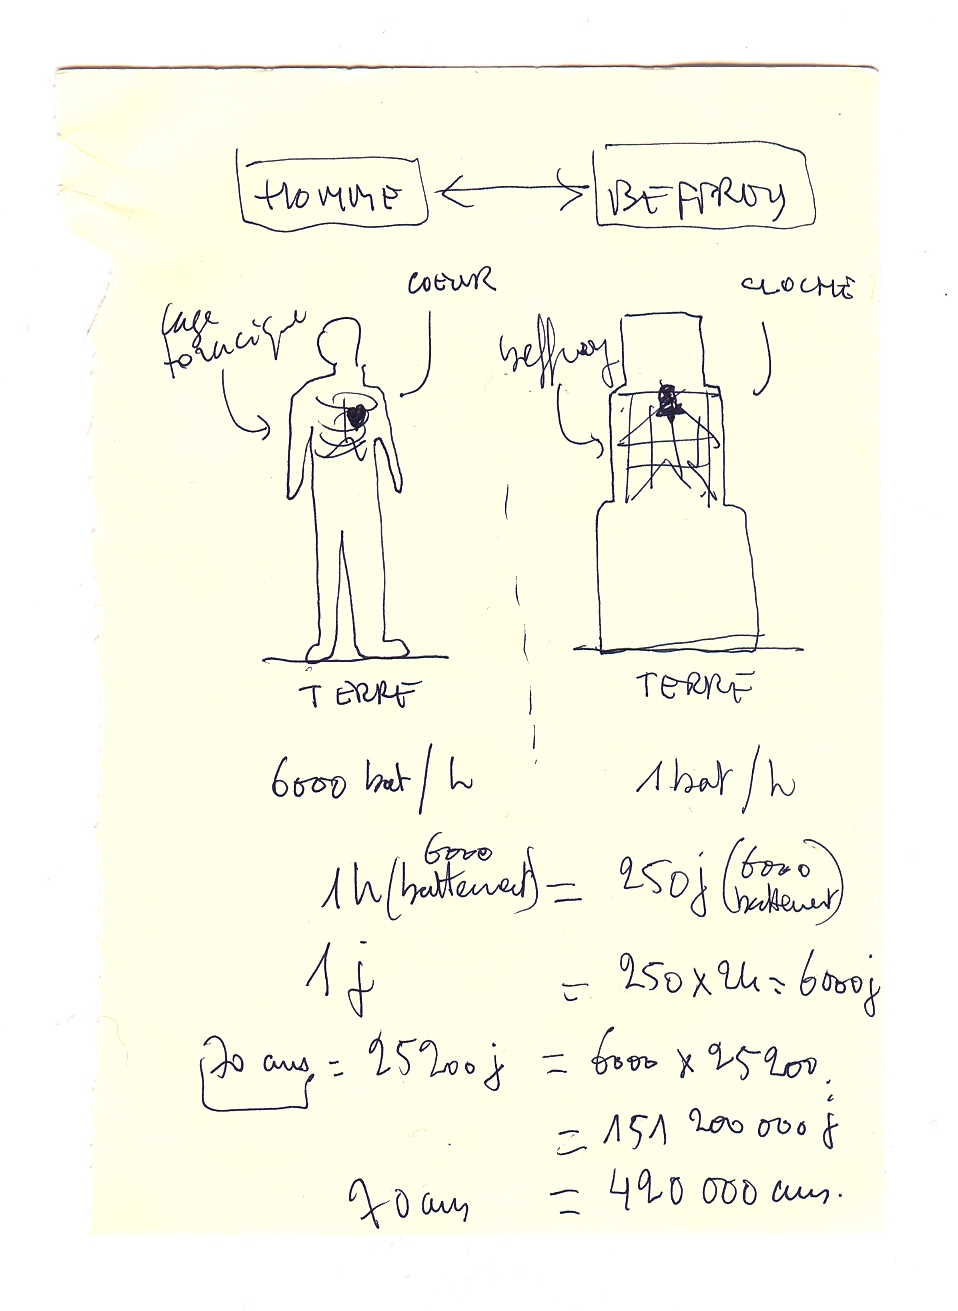 HOMME
BEFFROY
COEUR
CLOCHE
Cage
toracique
beffroy
TERRE
TERRE
6000 bat/h
1 bat/h
1h (6000 battement) = 250j (6000 battement)
1j = 250 x 24 = 6000j
70 ans = 25200j = 6000 x 25200
= 151 200 000 j
70 ans = 420 000 ans.